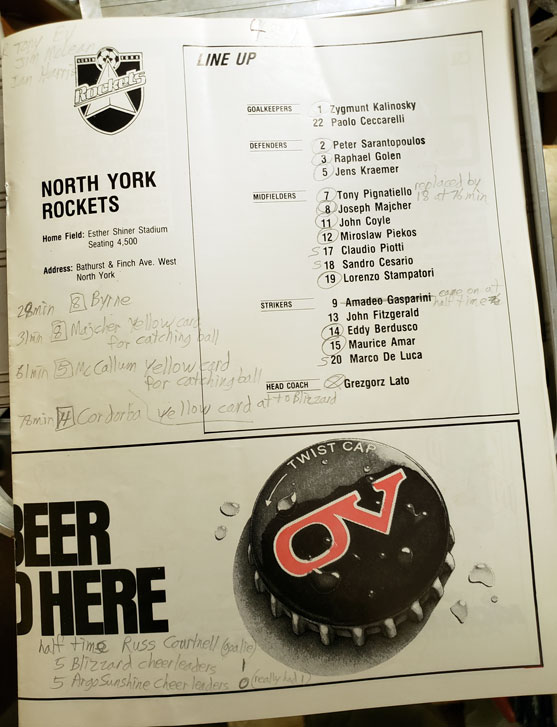 4
Jim McLean
Ian Harris
NORTH YORK
Rockets
LINE UP
NORTH YORK
ROCKETS
Home Field: Esther Shiner Stadium
Seating 4,500
Address: Bathurst & Finch Ave. West
North York
GOALKEEPERS
1 Zygmunt Kalinosky
22 Paolo Ceccarelli
DEFENDERS
2 Peter Sarantopoulos
3 Raphael Golen
5 Jens Kraemer
MIDFIELDERS
7 Tony Pignatiello replaced by 18 at 76 min
8 Joseph Majcher
11 John Coyle
12 Miroslaw Piekos
S 17 Claudio Piotti
S 18 Sandro Cesario
19 Lorenzo Stampatori
STRIKERS
9 Amadeo Gasparini came on at half time
13 John Fitzgerald
14 Eddy Berdusco
15 Maurice Amar
S 20 Marco De Luca
HEAD COACH
Grezgorz Lato
min 8 Byrne
31min 8 Majcher Yellow card
for catching ball
61min 5 McCallum Yellow card
for catching ball
78min 4 Cordorba yellow card at to Blizzard
BEER
HERE
TWIST CAP
OV
half time Russ Courtnell (goalie)
5 Blizzard cheerleaders 1
5 Argo Sunshine Cheerleaders 0 (really had 1)